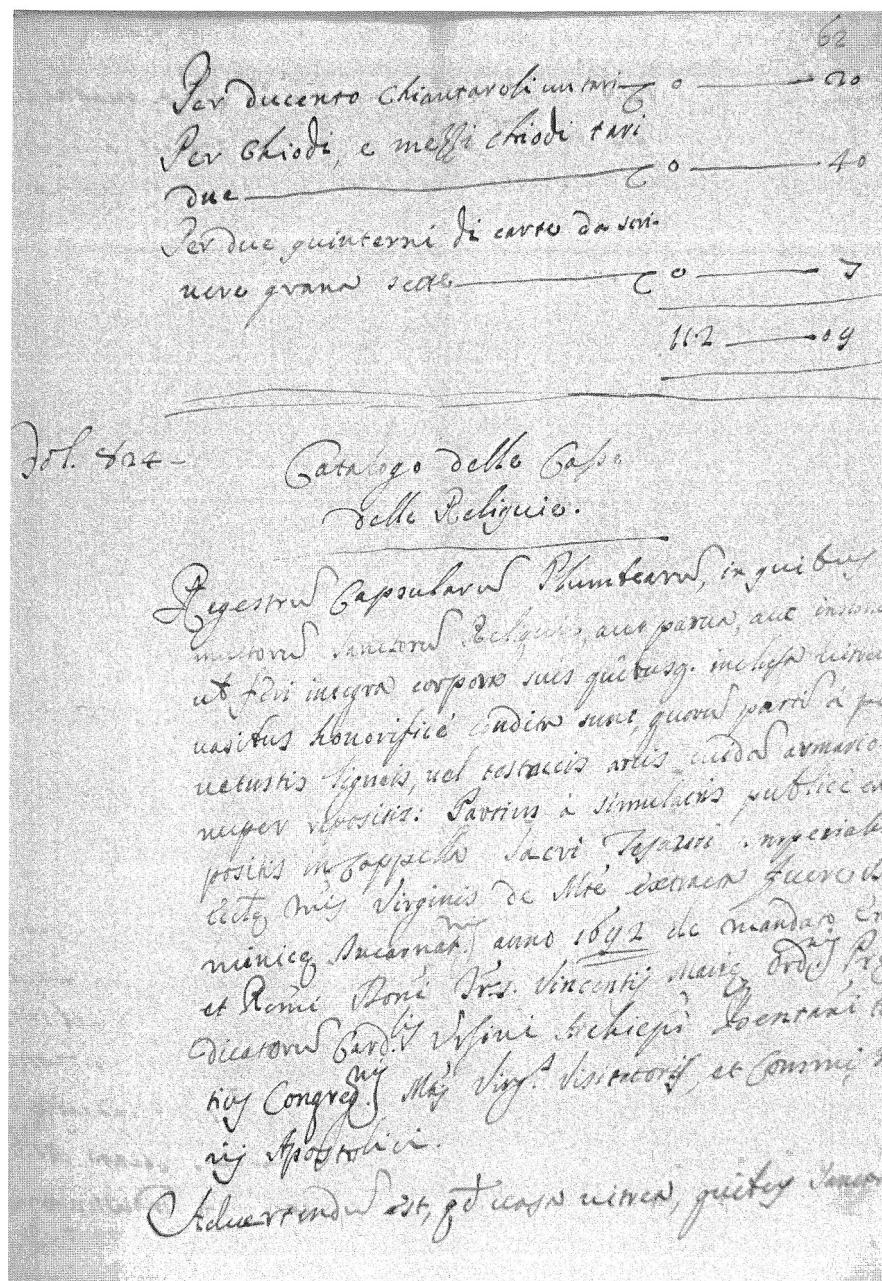 62
Per ducento Chiantaroli un tari — C 0 — 20
Per Chiodi, e mezzi chiodi tari
due — C 0 — 40
Per due quinterni di carte da scri-
vere grana sette — C 0 — 7
112 — 09
fol. 824 –
Catalogo delle Casse
delle Reliquie.
Regestrũ Capsularũ Plumbearũ, in quibus
multorũ sanctorũ Reliquię, aut parva, aut
ut ferè integra corpora suis quibusq. inclusa vitreis
vasibus honorificè condita sunt, quorũ partĩ à
vetustis ligneis, vel testaceis arcis cuidã armario
nuper repositis: Partim à simulacris publicè ex
positis in Cappella Sacri Tesauri Imperialis
Eccłę Mris Virginis de Mte extracta fuere
minicę Incarnat.nis anno 1692 de mandato
et Rẽmi Dõni Frs. Vincentij Marię Ord.nis Prę
dicatorũ Card.lis Ursini Archiepĩ Beventani
tius Congreg.nis Mtis Virg.s Visitatoris, et Commis
rij Apostolici.
Advertendũ est, qd vasa vitrea, quibus Sanct